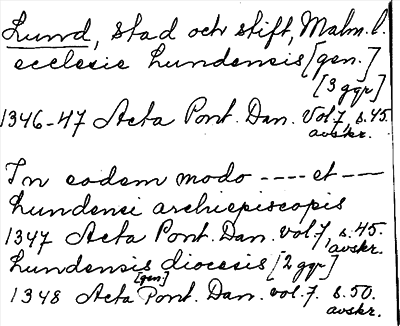 Lund, stad och stift, Malm. l.
ecclesie Lundensis [gen.]
[3 ggr]
1346-47 Acta Pont. Dan. Vol. 7, s. 45.
avskr.
In eodem modo ---- et ---
Lundensi archiepiscopis
1347 Acta Pont. Dan. vol. 7, s. 45.
avskr.
Lundensis diocesis [2 ggr]
[gen.]
1348 Acta Pont. Dan. vol. 7. s. 50.
avskr.